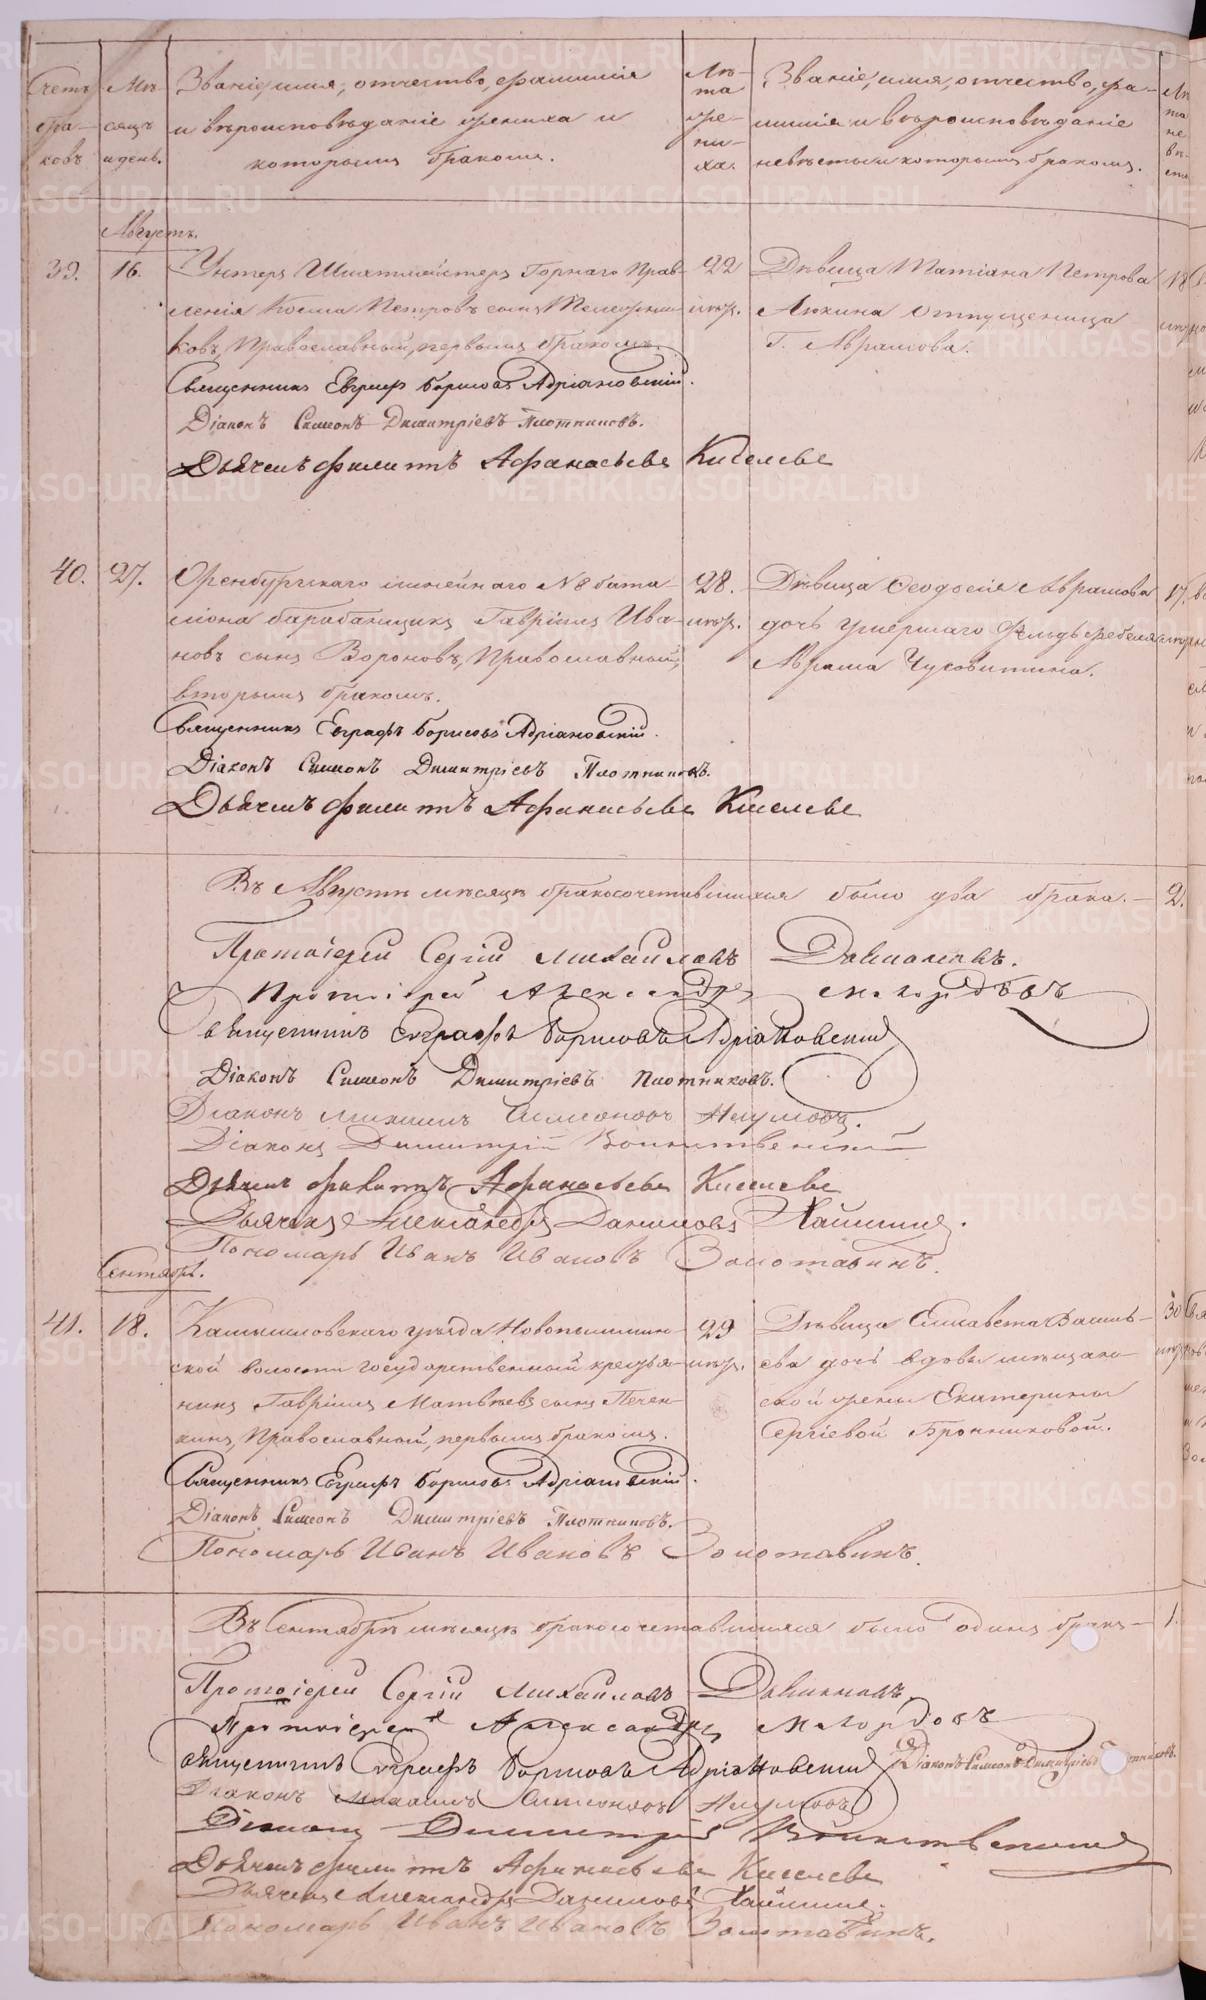 Счетъ браковъ.
Мѣсяцъ и день.
Званіе, имя, отчество, фамилія
и вѣроисповѣданіе жениха и
которымъ бракомъ.
Лѣта жениха.
Званіе, имя, отчество, фа-
милія и вѣроисповѣданіе
невѣсты и которымъ бракомъ.
Лѣта невѣсты
Августъ.
39. 16. Унтеръ Шихтмейстеръ Горнаго Прав-
ленія Косма Петровъ сынъ
ковъ, Православный, первымъ бракомъ.
22 лѣтъ.
Дѣвица Татіана Петрова
Аюхина отпущеница
Г. Аврамова.
18
Священникъ Евграфъ Борисовъ Адріановскій.
Діаконъ Симеонъ Димитріевъ Плотниковъ.
Дьячекъ Филиппъ Афанасьевъ Киселевъ
40. 27. Оренбургскаго линейнаго №8 бата-
ліона барабанщикъ Гавріилъ Ива-
новъ сынъ Вороновъ, Православный,
вторымъ бракомъ.
28. лѣтъ.
Дѣвица Ѳеодосія Аврамова
дочь умершаго Фельдфебеля
Аврама Чуховитина.
17.
Священникъ Евграфъ Борисовъ Адріановскій.
Діаконъ Симеонъ Димитріевъ Плотниковъ.
Дьячекъ Филиппъ Афанасьевъ Киселевъ
Въ Августѣ мѣсяцѣ бракосочетавшихся было два брака. — 2.
Протоіерей Сергій Михайловъ
Протоіерей Александръ
Священникъ Евграфъ Борисовъ Адріановскій
Діаконъ Симеонъ Димитріевъ Плотниковъ.
Діаконъ Михаилъ Симеоновъ Наумовъ.
Діаконъ Димитрій Воинственскій
Дьячекъ Филиппъ Афанасьевъ Киселевъ
Дьячекъ Александръ Даниловъ
Пономарь Иванъ Ивановъ Золотавинъ.
Сентябрь.
41. 18. Камышловскаго уѣзда Новопышмин-
ской волости государственный крестья-
нинъ Гавріилъ Матвѣевъ сынъ Печен-
кинъ, Православный, первымъ бракомъ.
29 лѣтъ.
Дѣвица Елисавета Василь-
ева дочь вдовы мѣщан-
ской жены Екатерины
Сергіевой Бронниковой.
30
Священникъ Евграфъ Борисовъ Адріановскій.
Діаконъ Симеонъ Димитріевъ Плотниковъ.
Пономарь Иванъ Ивановъ Золотавинъ.
Въ Сентябрѣ мѣсяцѣ бракосочетавшихся было одинъ бракъ — 1.
Протоіерей Сергій Михайловъ
Протоіерей Александръ
Священникъ Евграфъ Борисовъ Адріановскій
Діаконъ Симеонъ Димитріевъ Плотниковъ.
Діаконъ Михаилъ Симеоновъ Наумовъ
Діаконъ Димитрій Воинственскій
Дьячекъ Филиппъ Афанасьевъ Киселевъ
Дьячекъ Александръ Даниловъ
Пономарь Иванъ Ивановъ Золотавинъ.
METRIKI.GASO-URAL.RU